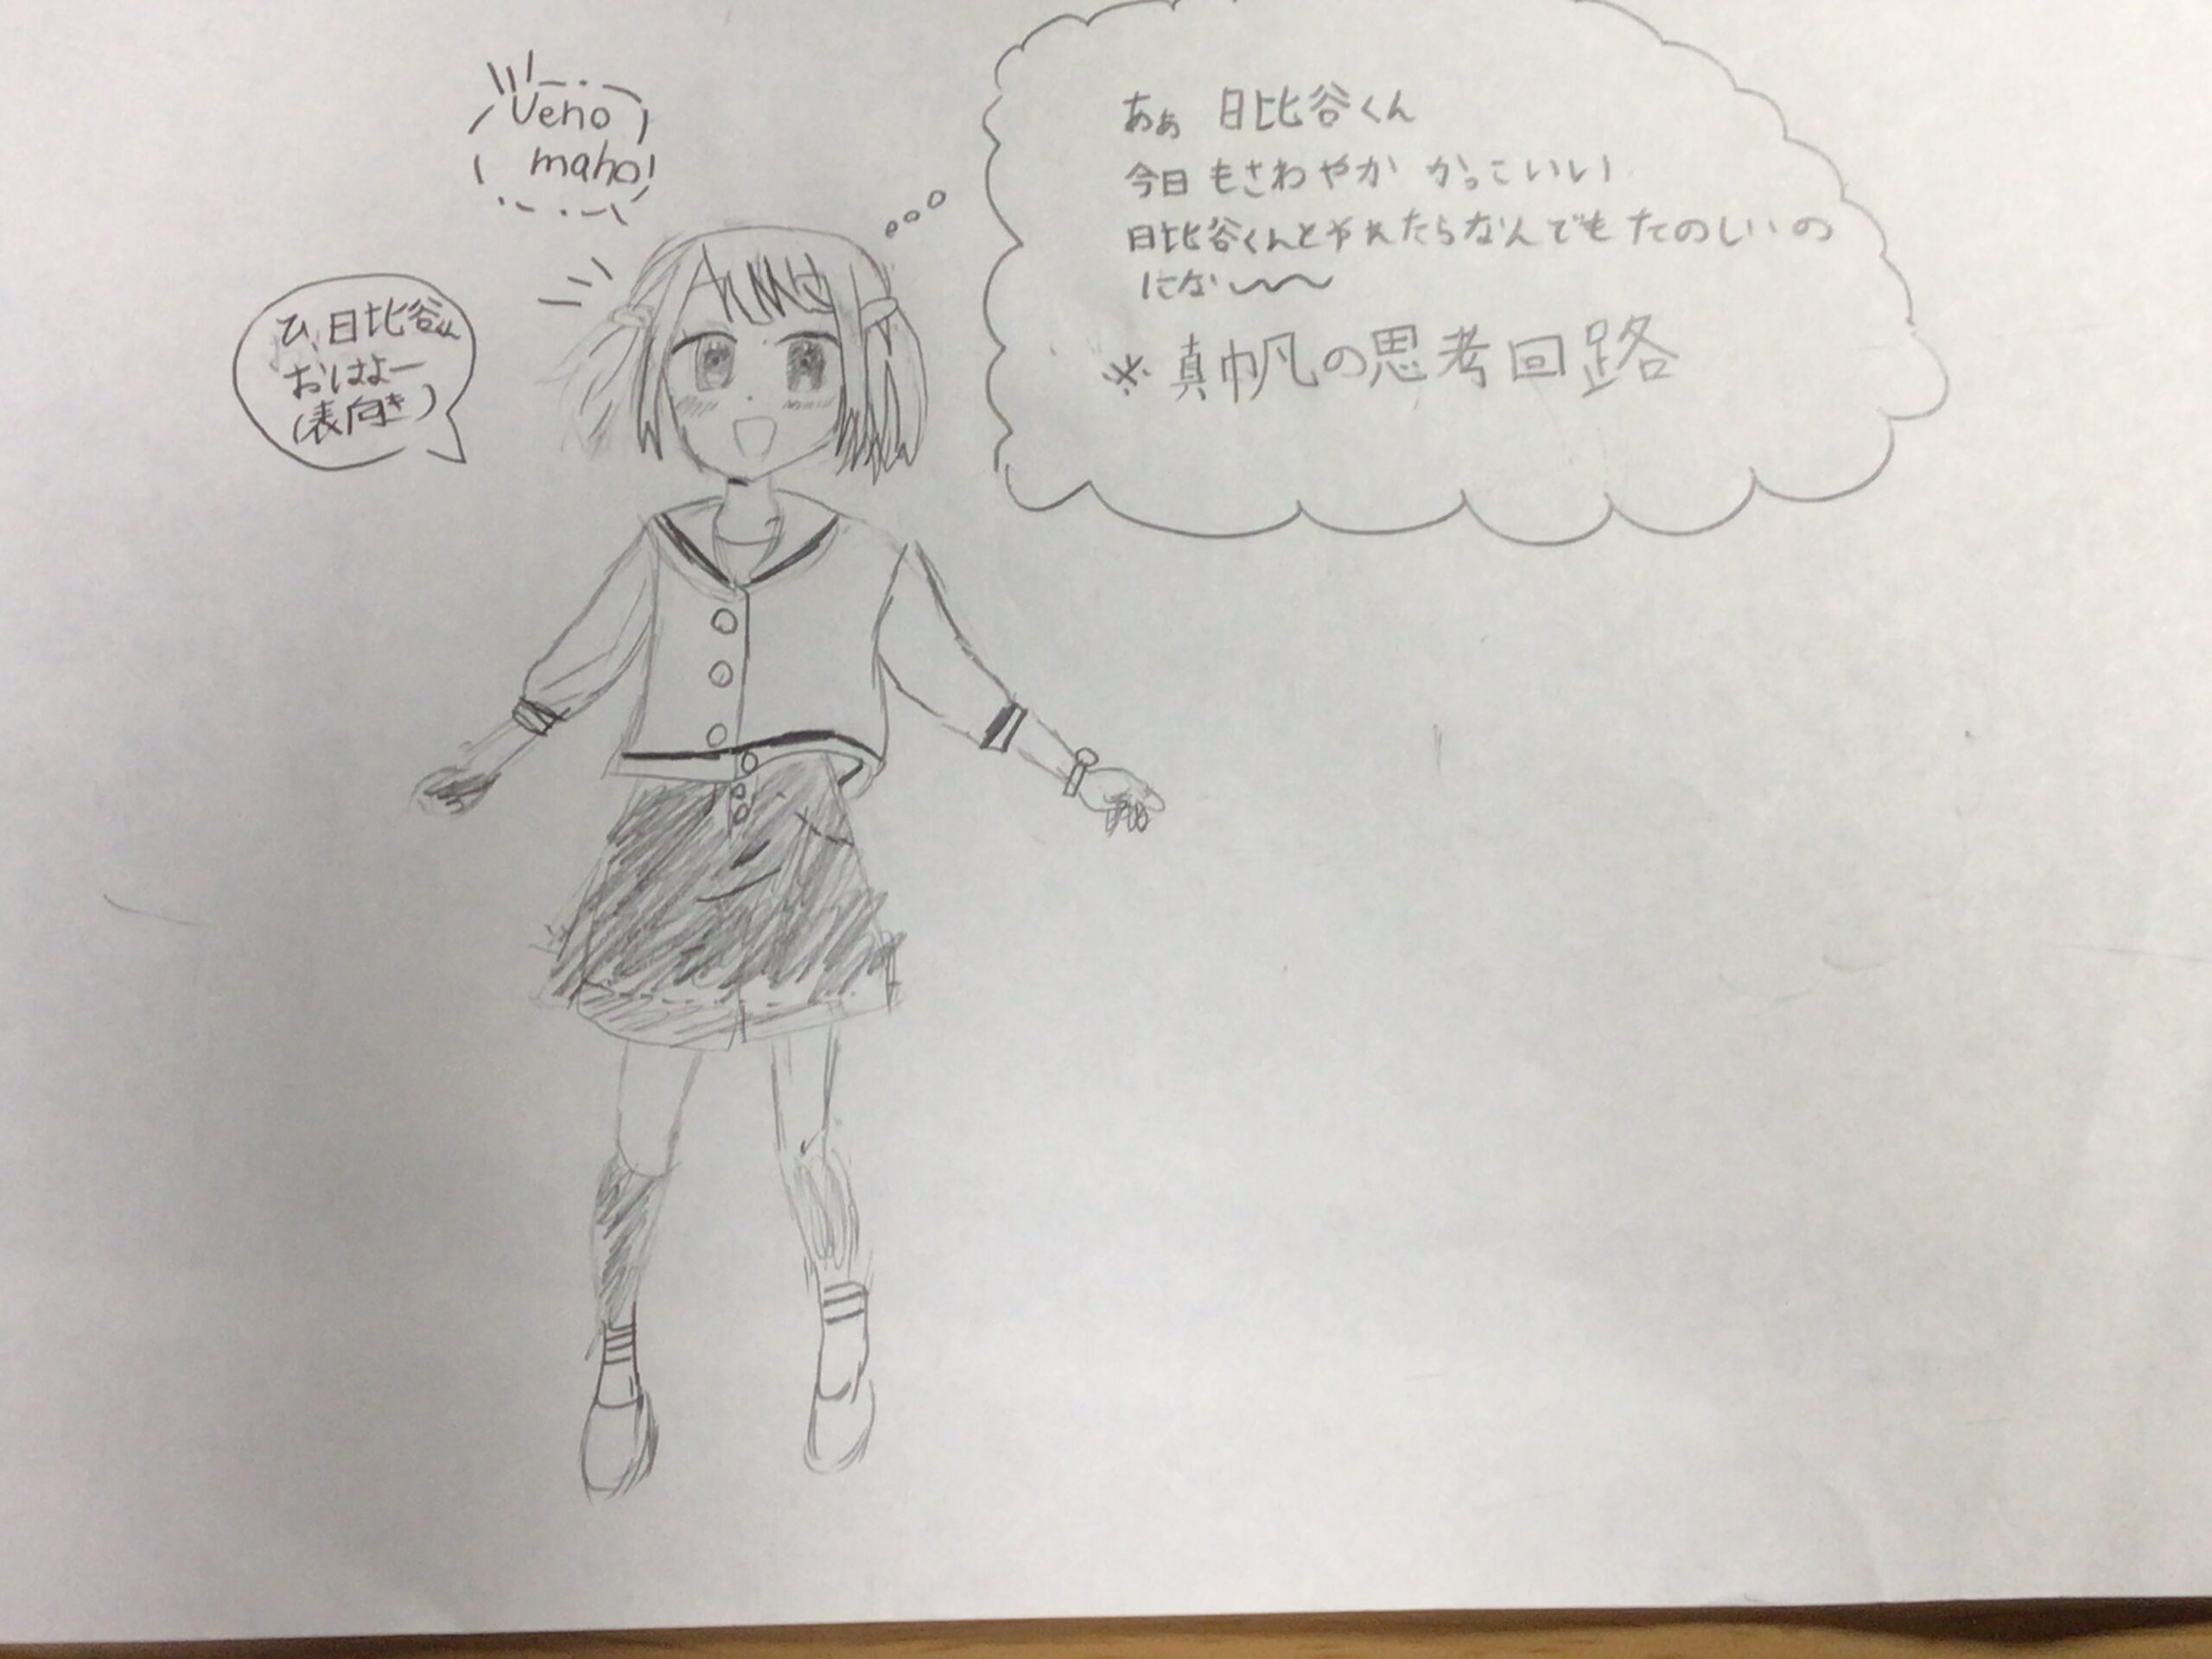 Ueno
maho
ひ、日比谷くん
おはよー
(表向き)
あぁ 日比谷くん
今日もさわやか かっこいい
日比谷くんとやれたらなんでもたのしいの
にな〜〜
※真帆の思考回路